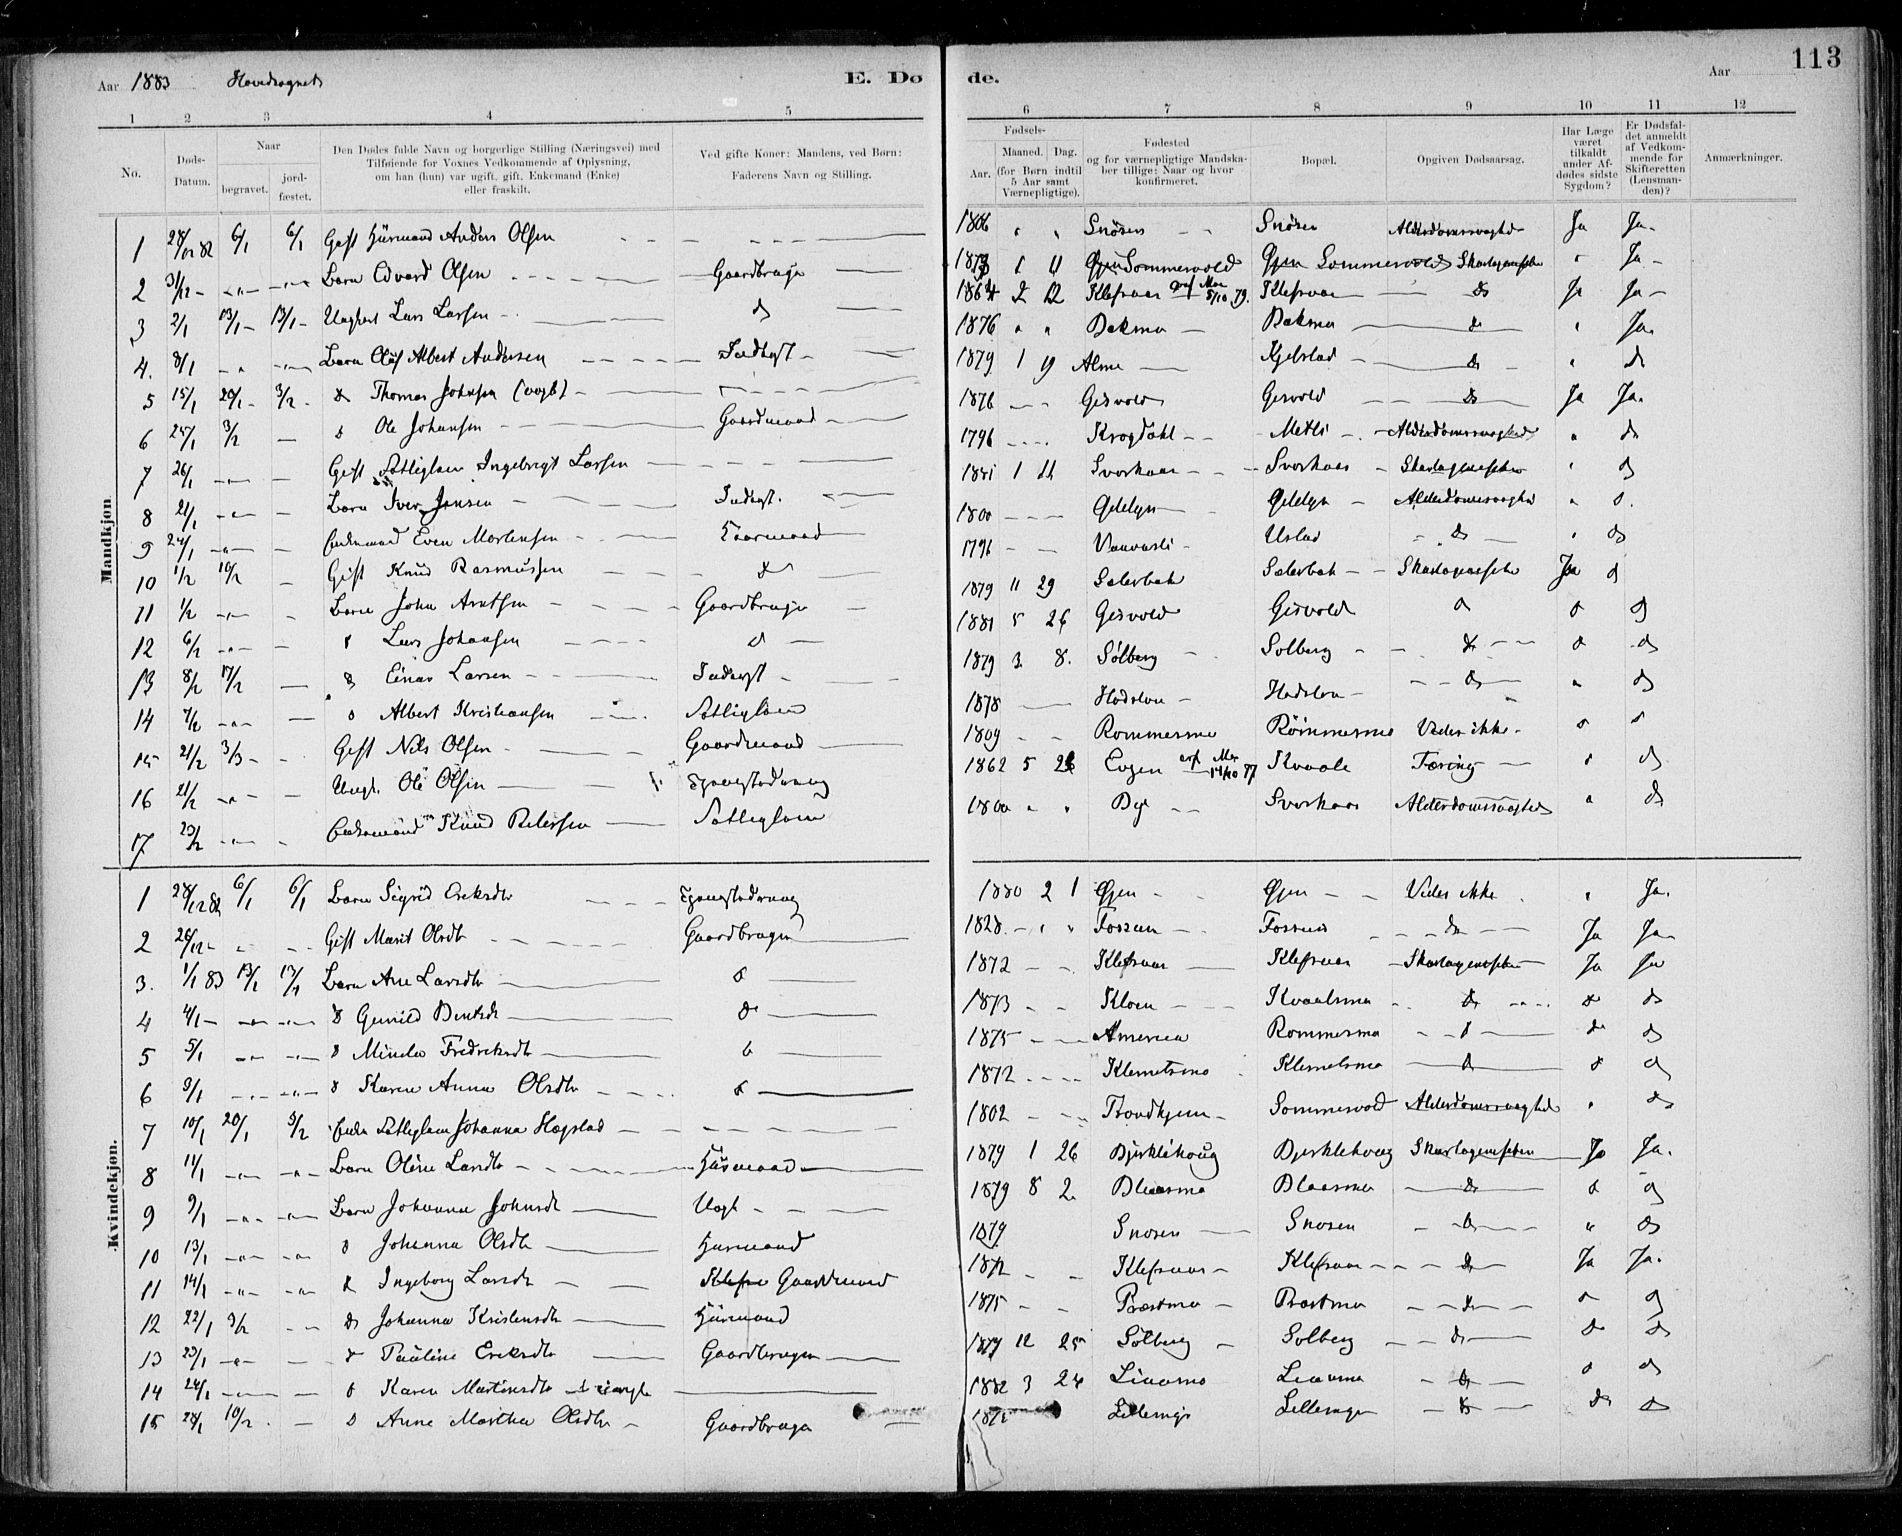 113
Aar 1883 Hovedsognet E. Dø de. Aar
1 2 3 4 5 6 7 8 9 10 11 12
No.
Døds-Datum.
Naar
begravet.
jordfæstet.
Den Dødes fulde Navn og borgerlige Stilling (Næringsvei) med
Tilføiende for Voxnes Vedkommende af Oplysning,
om han (hun) var ugift, gift, Enkemand (Enke)
eller fraskilt.
Ved gifte Koner: Mandens, ved Børn:
Faderens Navn og Stilling.
Fødsels-
Aar. Maaned. Dag.
(for Børn indtil
5 Aar samt
Værnepligtige).
Fødested
og for værnepligtige Mandska-
ber tillige: Naar og hvor
konfirmeret.
Bopæl.
Opgiven Dødsaarsag.
Har Læge
været
tilkaldt
under Af-
dødes sidste
Sygdom?
Er Dødsfal-
det anmeldt
af Vedkom-
mende for
Skifteretten
(Lensman-
den)?
Anmærkninger.
Mandkjøn
1 28/12 82 6/1 6/1 Gift Husmand Anders Olsen 1806 Snøsen Snøsen Alderdomssvaghed Ja Ja
2 31/12 Barn Edvard Olsen Gaardbruger 1 11 Sommervold Gjen Sommervold Skarlagensfeber Ja
3 2/1 13/1 13/1 Ugift Lars Larsen d 1864 2 12 Klefsaas 5/10 79. Klefsaas d Ja Ja
4. 8/1 Barn Oluf Albert Andersen Inderst 1876 Bakmo Bakmo d Ja
5 15/1 20/1 3/2 d Thomas Johnsen 1879 1 9 Alme Kjelstad d d
6 25/1 3/2 d Ole Johansen Gaardmand 1876 Gisvold Gisvold d Ja Ja
7 26/1 Gift Fattiglem Ingebrigt Larsen 1796 Krogdahl Metli Alderdomssvaghed d
8 21/1 Barn Iver Jensen Inderst. 1881 1 11 Svorkaas Svorkaas Skarlagensfeber d
9 24/1 Enkemand Even Mortensen Kaarmand 1800 Alderdomssvaghed d.
10 1/2 10/2 Gift Knud Rasmussen d 1796 Ustad d d
11 1/2 Barn John Arntsen Gaardbruger 1879 11 29 Sæterbak Sæterbak Skarlagensfeber Ja d
12 6/2 d Lars Johansen d 1881 5 26 Gisvold Gisvold d d d
13 8/2 17/2 d Einar Larsen Inderst 1879 3 8. Solberg Solberg d d d
14 7/2 d Albert Kristiansen Fattiglem 1878 d d
15 21/2 3/3 Gift Nils Olsen Gaardmand 1809 Rommesmo Rommesmo Vides ikke d d
16 21/2 Ugift. Ole Olsen 1862 5 26 14/10 77 Kvaale Tæring d d
17 23/2 Enkemand Knud Pedersen Fattiglem 1800 Bye Svorkaas Alderdomssvaghed d
Kvindekjøn.
1 28/12 82 6/1 6/1 Barn Sigrid Eriksdtr 1880 2 1 Gjen Gjen Vides ikke Ja.
2 26/12 Gift Marit Olsdtr Gaardbruger 1828 Fossum Fossum d Ja Ja
3. 1/1 83 13/1 13/1 Barn Ane Larsdtr d 1872 Klefsaas Klefsaas Skarlagensfeber Ja Ja
4 4/1 d Gunild Bentsdtr d 1873 Kloen Kvaalsmo d d d
5 5/1 d Minda Fredriksdtr d 1875 America Rommesmo d d d
6 9/1 d Karen Anna Olsdtr d 1872 Klemetsmo Klemetsmo d d d
7 10/1 20/1 3/2 Enke Fattiglem Johanna Hogstad 1802 Trondhjem Sommervold Alderdomssvaghed d
8 11/1 Barn Oline Larsdtr Husmand 1879 1 26 Bjerklihoug Bjerklihoug Skarlagensfeber Ja Ja.
9 9/1 Barn Johanna Johnsdtr 1879 8 2 Blaasmo Blaasmo d d d
10 13/1 d Johanna Olsdtr Husmand 1879 Snosen Snosen d d
11 14/1 d Ingeborg Larsdtr Gaardmand 1872 Klefsaas Klefsaas d Ja Ja.
12 22/1 3/2 d Johanna Kristensdtr Husmand 1875 Præstmo Præstmo d d d
13 23/1 d Pauline Eriksdtr Gaardbruger 1877 12 25 Solberg Solberg d d d
14 24/1 d Karen Martinsdtr 1882 3 24 Linomo Linomo d d d
15 28/1 10/2 d Anne Marthea Olsdtr Gaardbruger d d d